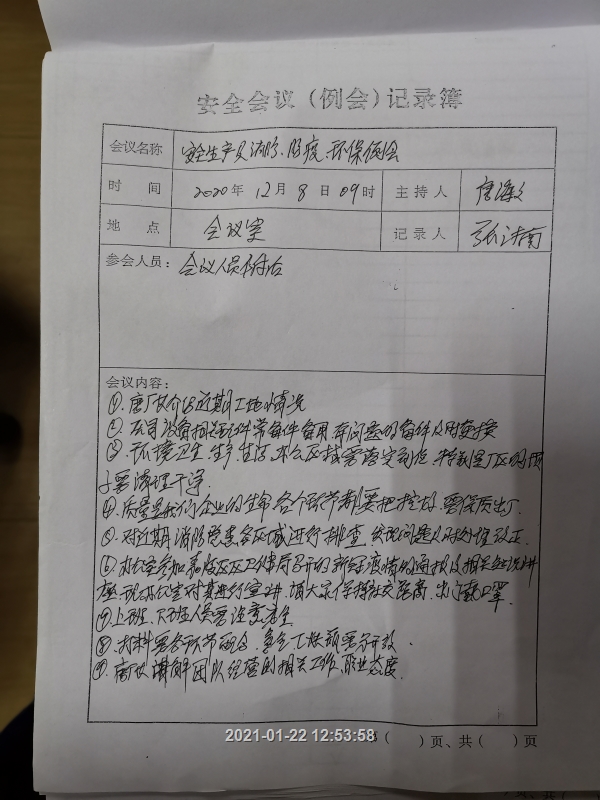 安全会议（例会）记录簿
会议名称 安全生产及消防、防疫、环保例会
时 间 2020年12月8日09时 主持人 唐海
地 点 会议室 记录人 张
参会人员：会议人员附后
会议内容：
①.唐厂长介绍近期工地情况
②.公司设备相关配件常备件备用,有问题的备件及时更换
③.环境卫生、生产、生活、办公区域要落实到位,特别是厂区明阴
子要清理干净
④.质量是我们企业的生命,各个环节都要把控好,要保质出厂.
⑤.对近期消防隐患各区域进行排查,发现问题及时处理改正.
⑥.办公室参加嘉陵区卫健局召开的新冠疫情的通报及相关知识讲
座,现办公室对其进行宣讲,请大家保持社交距离,出门戴口罩.
⑦上班、下班人员要注意安全
⑧.打料要各环节配合,
⑨.唐厂讲解团队经营的相关工作,职业态度.
（ ）页、共（ ）页
2021-01-22 12:53:58